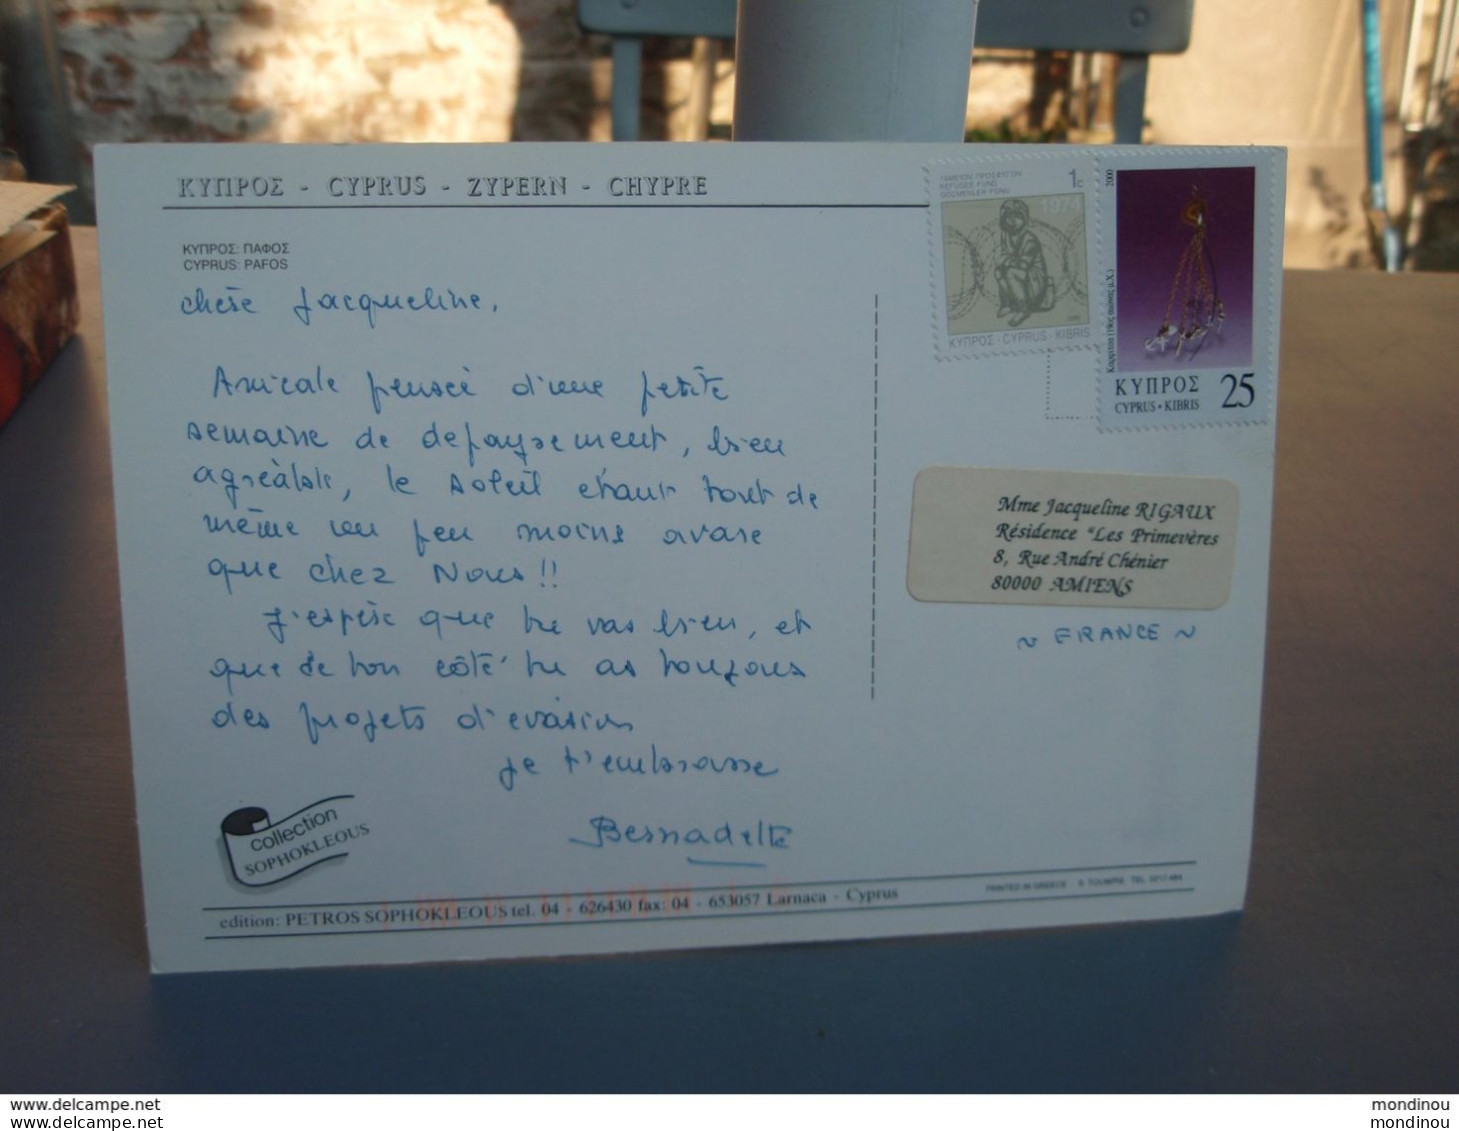 ΚΥΠΡΟΣ - CYPRUS - ZYPERN - CHYPRE
ΚΥΠΡΟΣ: ΠΑΦΟΣ
CYPRUS: PAFOS
chère Jacqueline,
Amicale pensée d'une petite
semaine de depaysement, bien
agréable, le soleil etant tout de
même un peu moins avare
que chez Nous!!
J'espère que tu vas bien, et
que de ton côté tu as toujours
des projets d'evasion
je t'embrasse
Bernadette
collection
SOPHOKLEOUS
edition: PETROS SOPHOKLEOUS tel. 04 - 626430 fax: 04 - 653057 Larnaca - Cyprus
PRINTED IN GREECE
ΤΑΜΕΙΟΝ ΠΡΟΣΦΥΓΩΝ
REFUGEE FUND
GÖÇMENLER FONU
1c
1974
ΚΥΠΡΟΣ · CYPRUS · KIBRIS
2000
ΚΥΠΡΟΣ
CYPRUS · KIBRIS
25
Mme Jacqueline RIGAUX
Résidence "Les Primevères
8, Rue André Chénier
80000 AMIENS
~ FRANCE ~
delcampe.net
mondinou
delcampe.net
mondinou